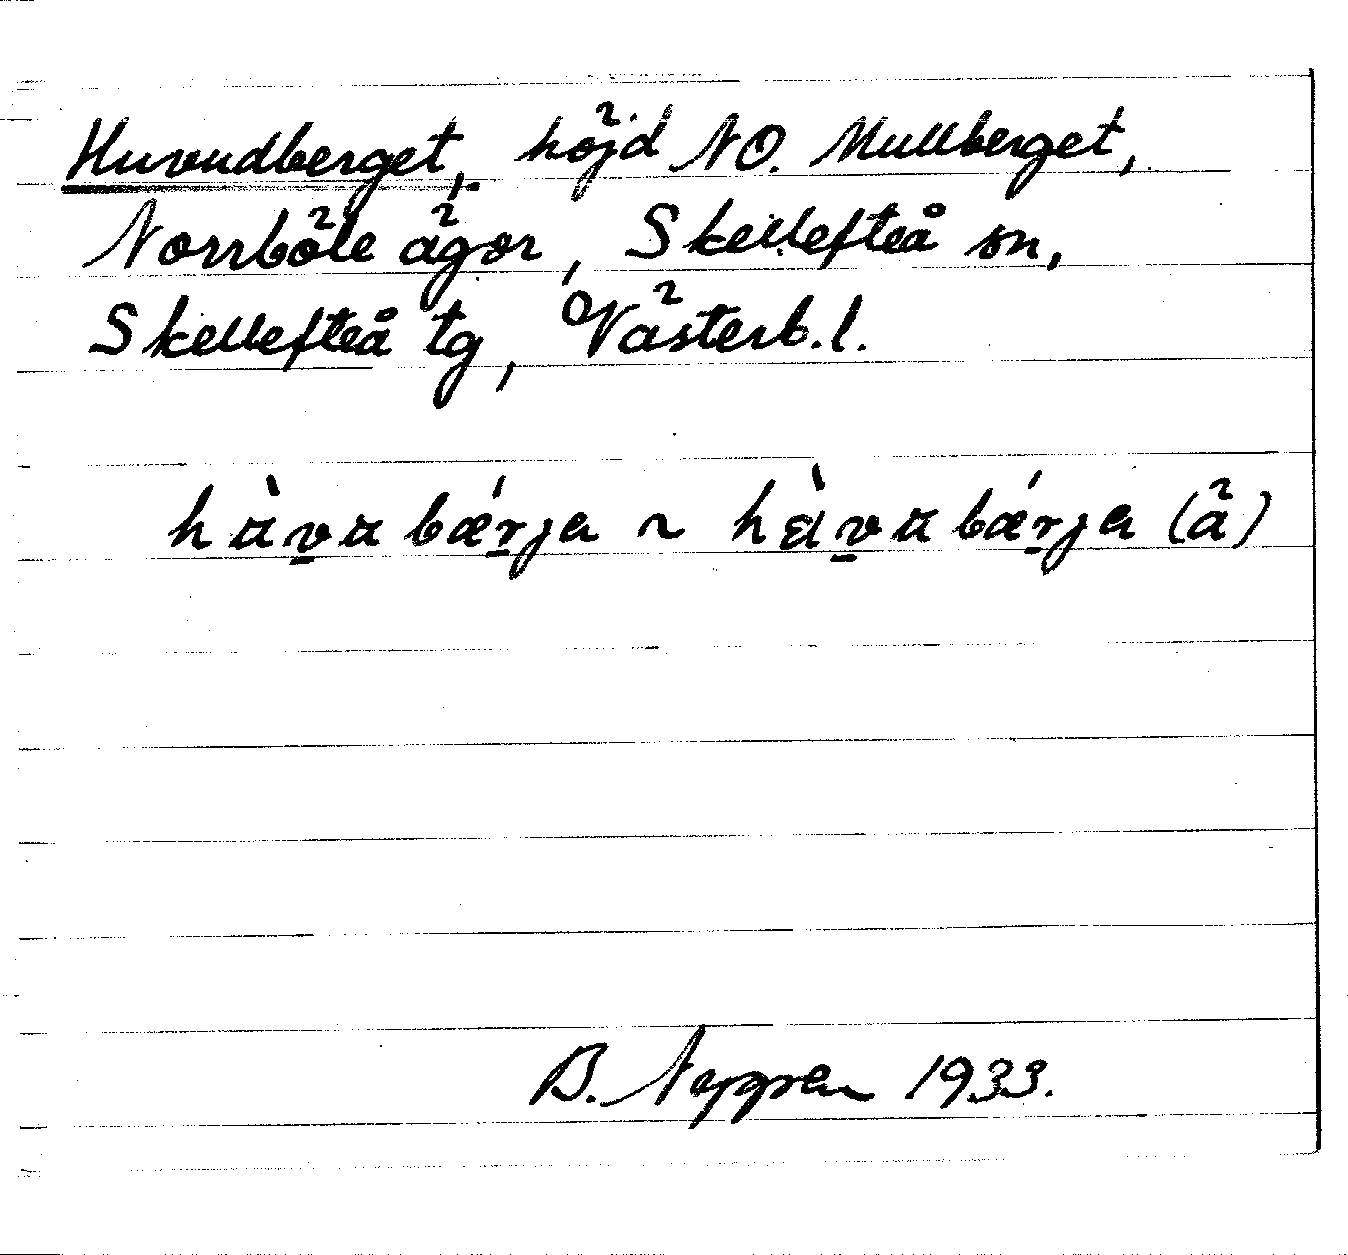 Huvudberget, höjd NO. Mullberget,
Norrböle ägor, Skellefteå sn,
Skellefteå tg, Västerb.l.
hàva bǽrja ~ hàva bǽrja (å)
B. 1933.